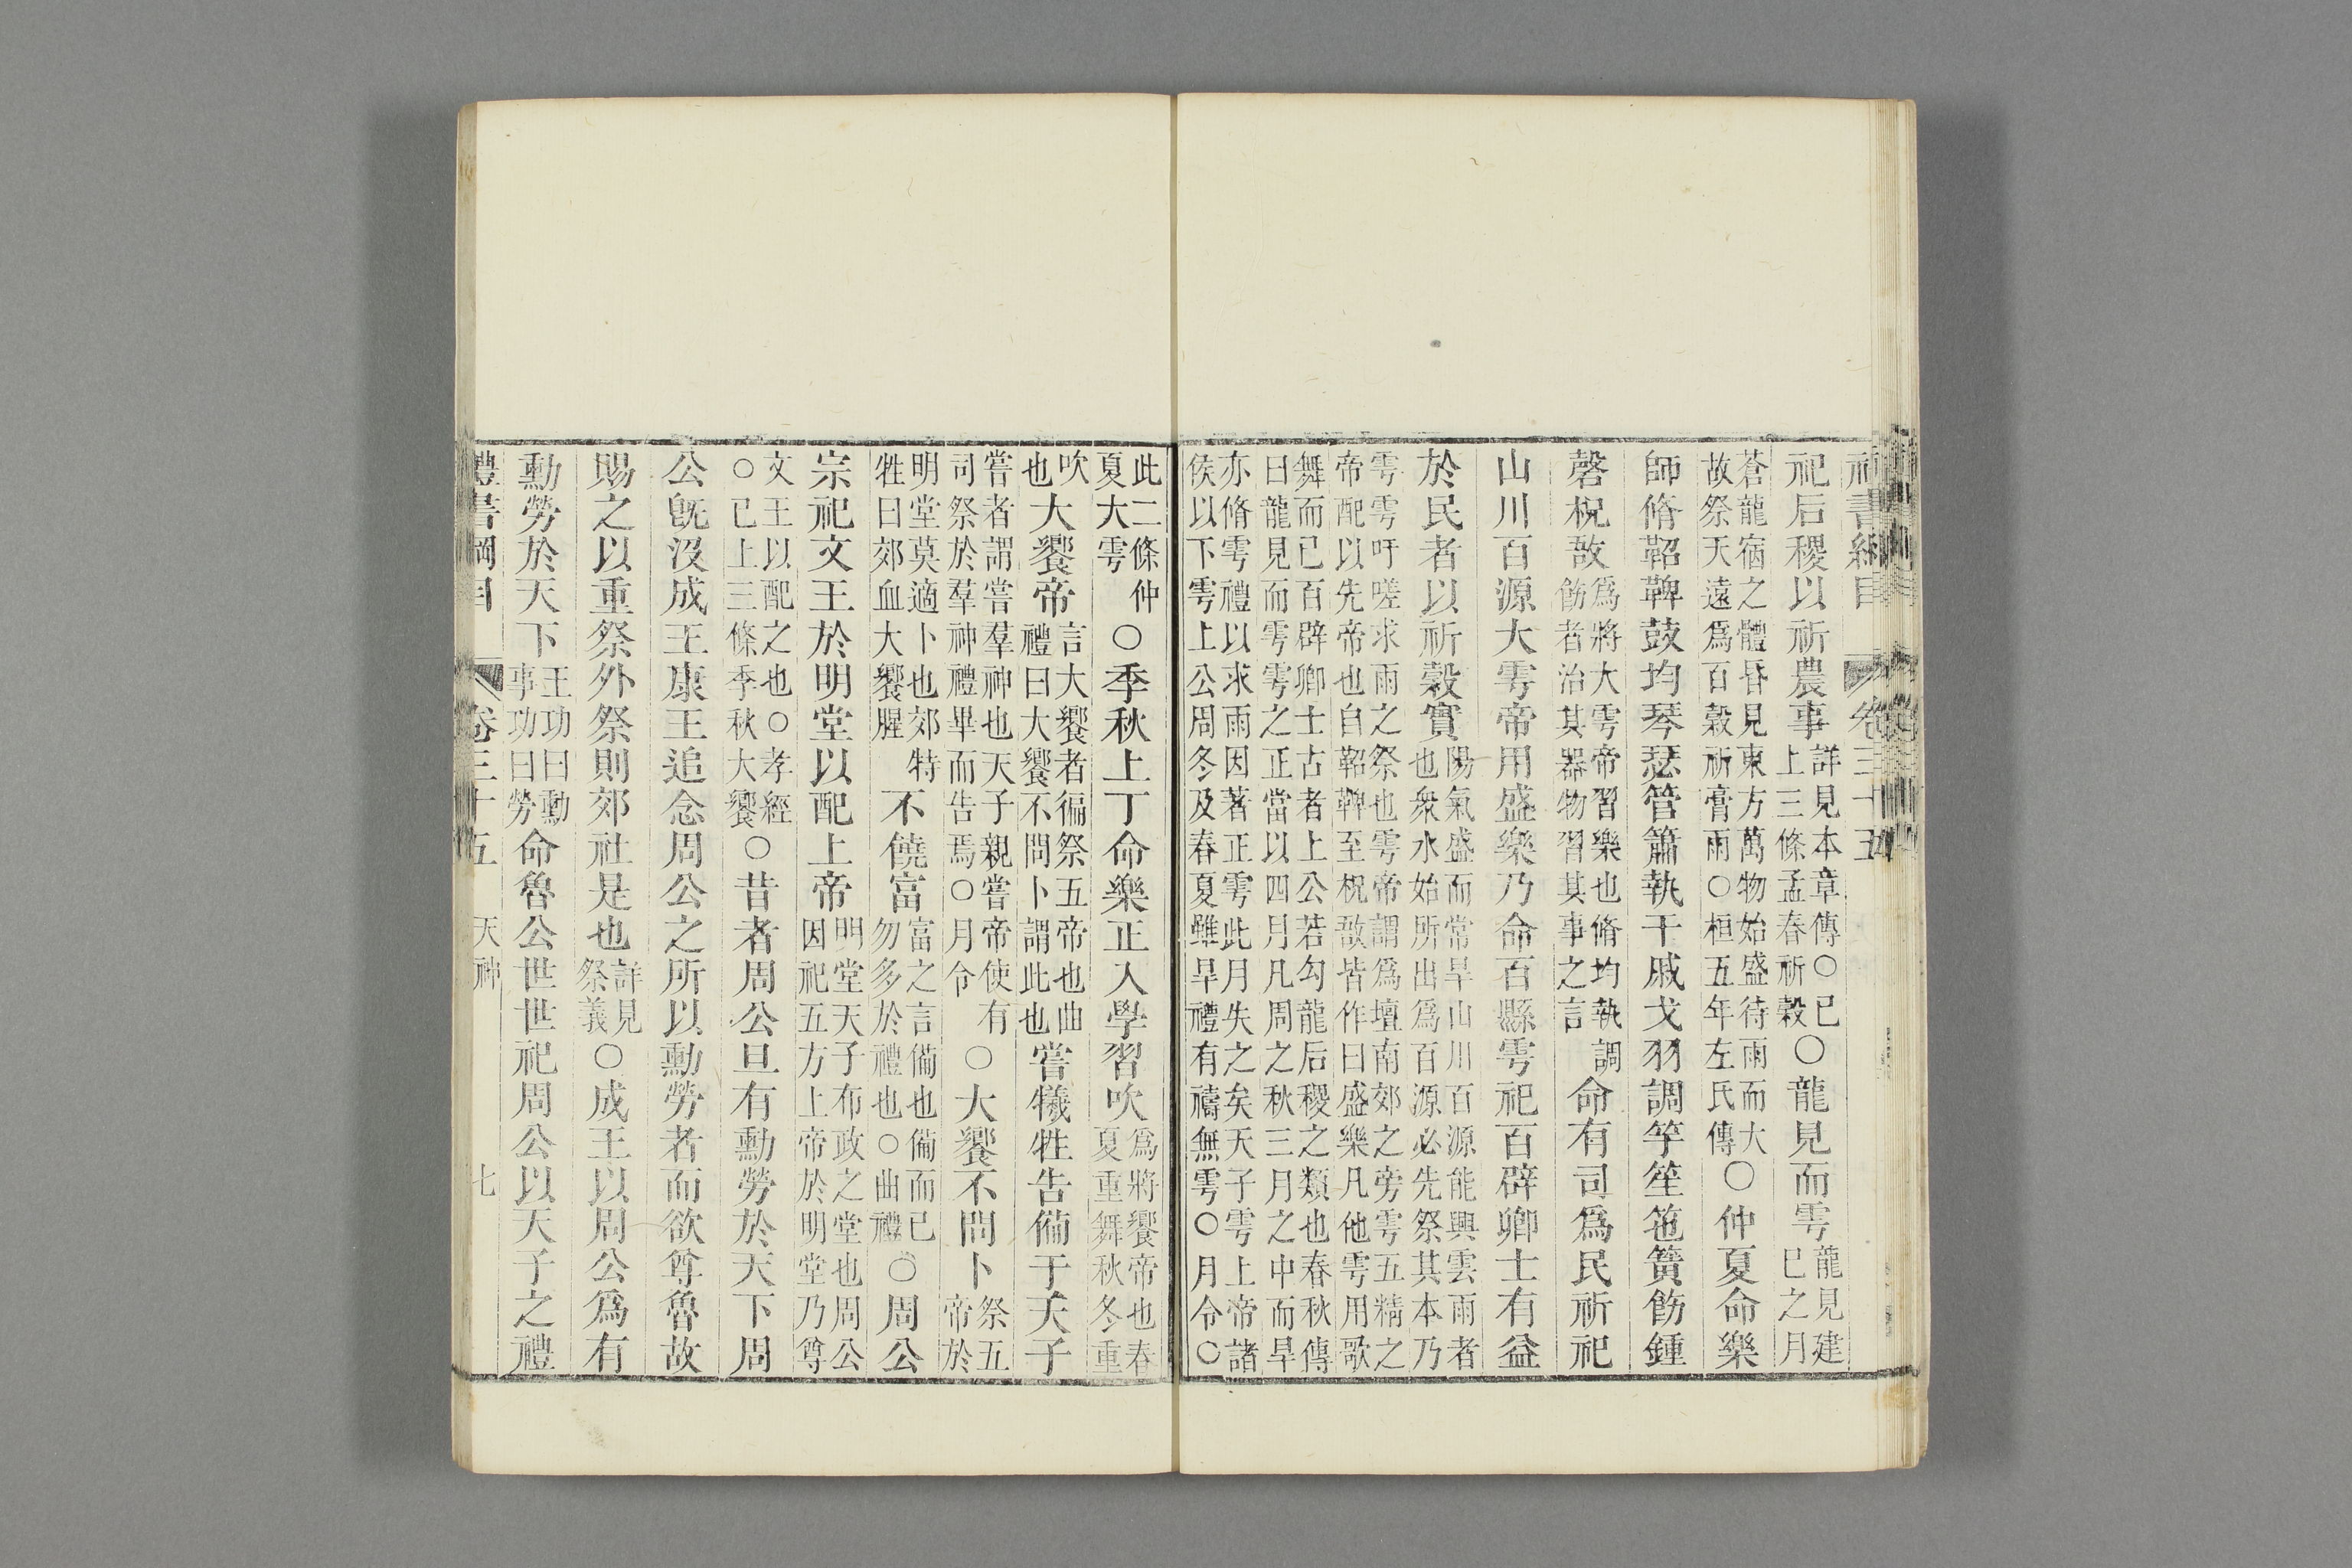 禮書綱目　卷三十五
祀后稷以祈農事詳見本章傳○已上三條孟春祈穀○龍見而雩龍見建巳之月
蒼龍宿之體昏見東方萬物始盛待雨而大故祭天遠爲百穀祈膏雨○桓五年左氏傳○仲夏命樂
師脩鞀鞞鼓均琴瑟管簫執干戚戈羽調竽笙竾簧飭鍾
磬柷敔爲將大雩帝習樂也脩均執調飭者治其器物習其事之言命有司爲民祈祀
山川百源大雩帝用盛樂乃命百縣雩祀百辟卿士有益
於民者以祈穀實陽氣盛而常旱山川百源能興雲雨者也衆水始所出爲百源必先祭其本乃
雩雩吁嗟求雨之祭也雩帝謂爲壇南郊之旁雩五精之帝配以先帝也自鞀鞞至柷敔皆作曰盛樂凡他雩用歌
舞而已百辟卿士古者上公若勾龍后稷之類也春秋傳曰龍見而雩雩之正當以四月凡周之秋三月之中而旱
亦脩雩禮以求雨因著正雩此月失之矣天子雩上帝諸侯以下雩上公周冬及春夏雖旱禮有禱無雩○月令○
此二條仲夏大雩○季秋上丁命樂正入學習吹爲將饗帝也春夏重舞秋冬重
吹也大饗帝言大饗者徧祭五帝也曲禮曰大饗不問卜謂此也嘗犧牲告備于天子
嘗者謂嘗羣神也天子親嘗帝使有司祭於羣神禮畢而告焉○月令○大饗不問卜祭五帝於
明堂莫適卜也郊特牲曰郊血大饗腥不饒富富之言備也備而已勿多於禮也○曲禮○周公
宗祀文王於明堂以配上帝明堂天子布政之堂也周公因祀五方上帝於明堂乃尊
文王以配之也○孝經○已上三條季秋大饗○昔者周公旦有勳勞於天下周
公旣沒成王康王追念周公之所以勳勞者而欲尊魯故
賜之以重祭外祭則郊社是也詳見祭義○成王以周公爲有
勳勞於天下王功曰勳事功曰勞命魯公世世祀周公以天子之禮
禮書綱目　卷三十五　天神　七